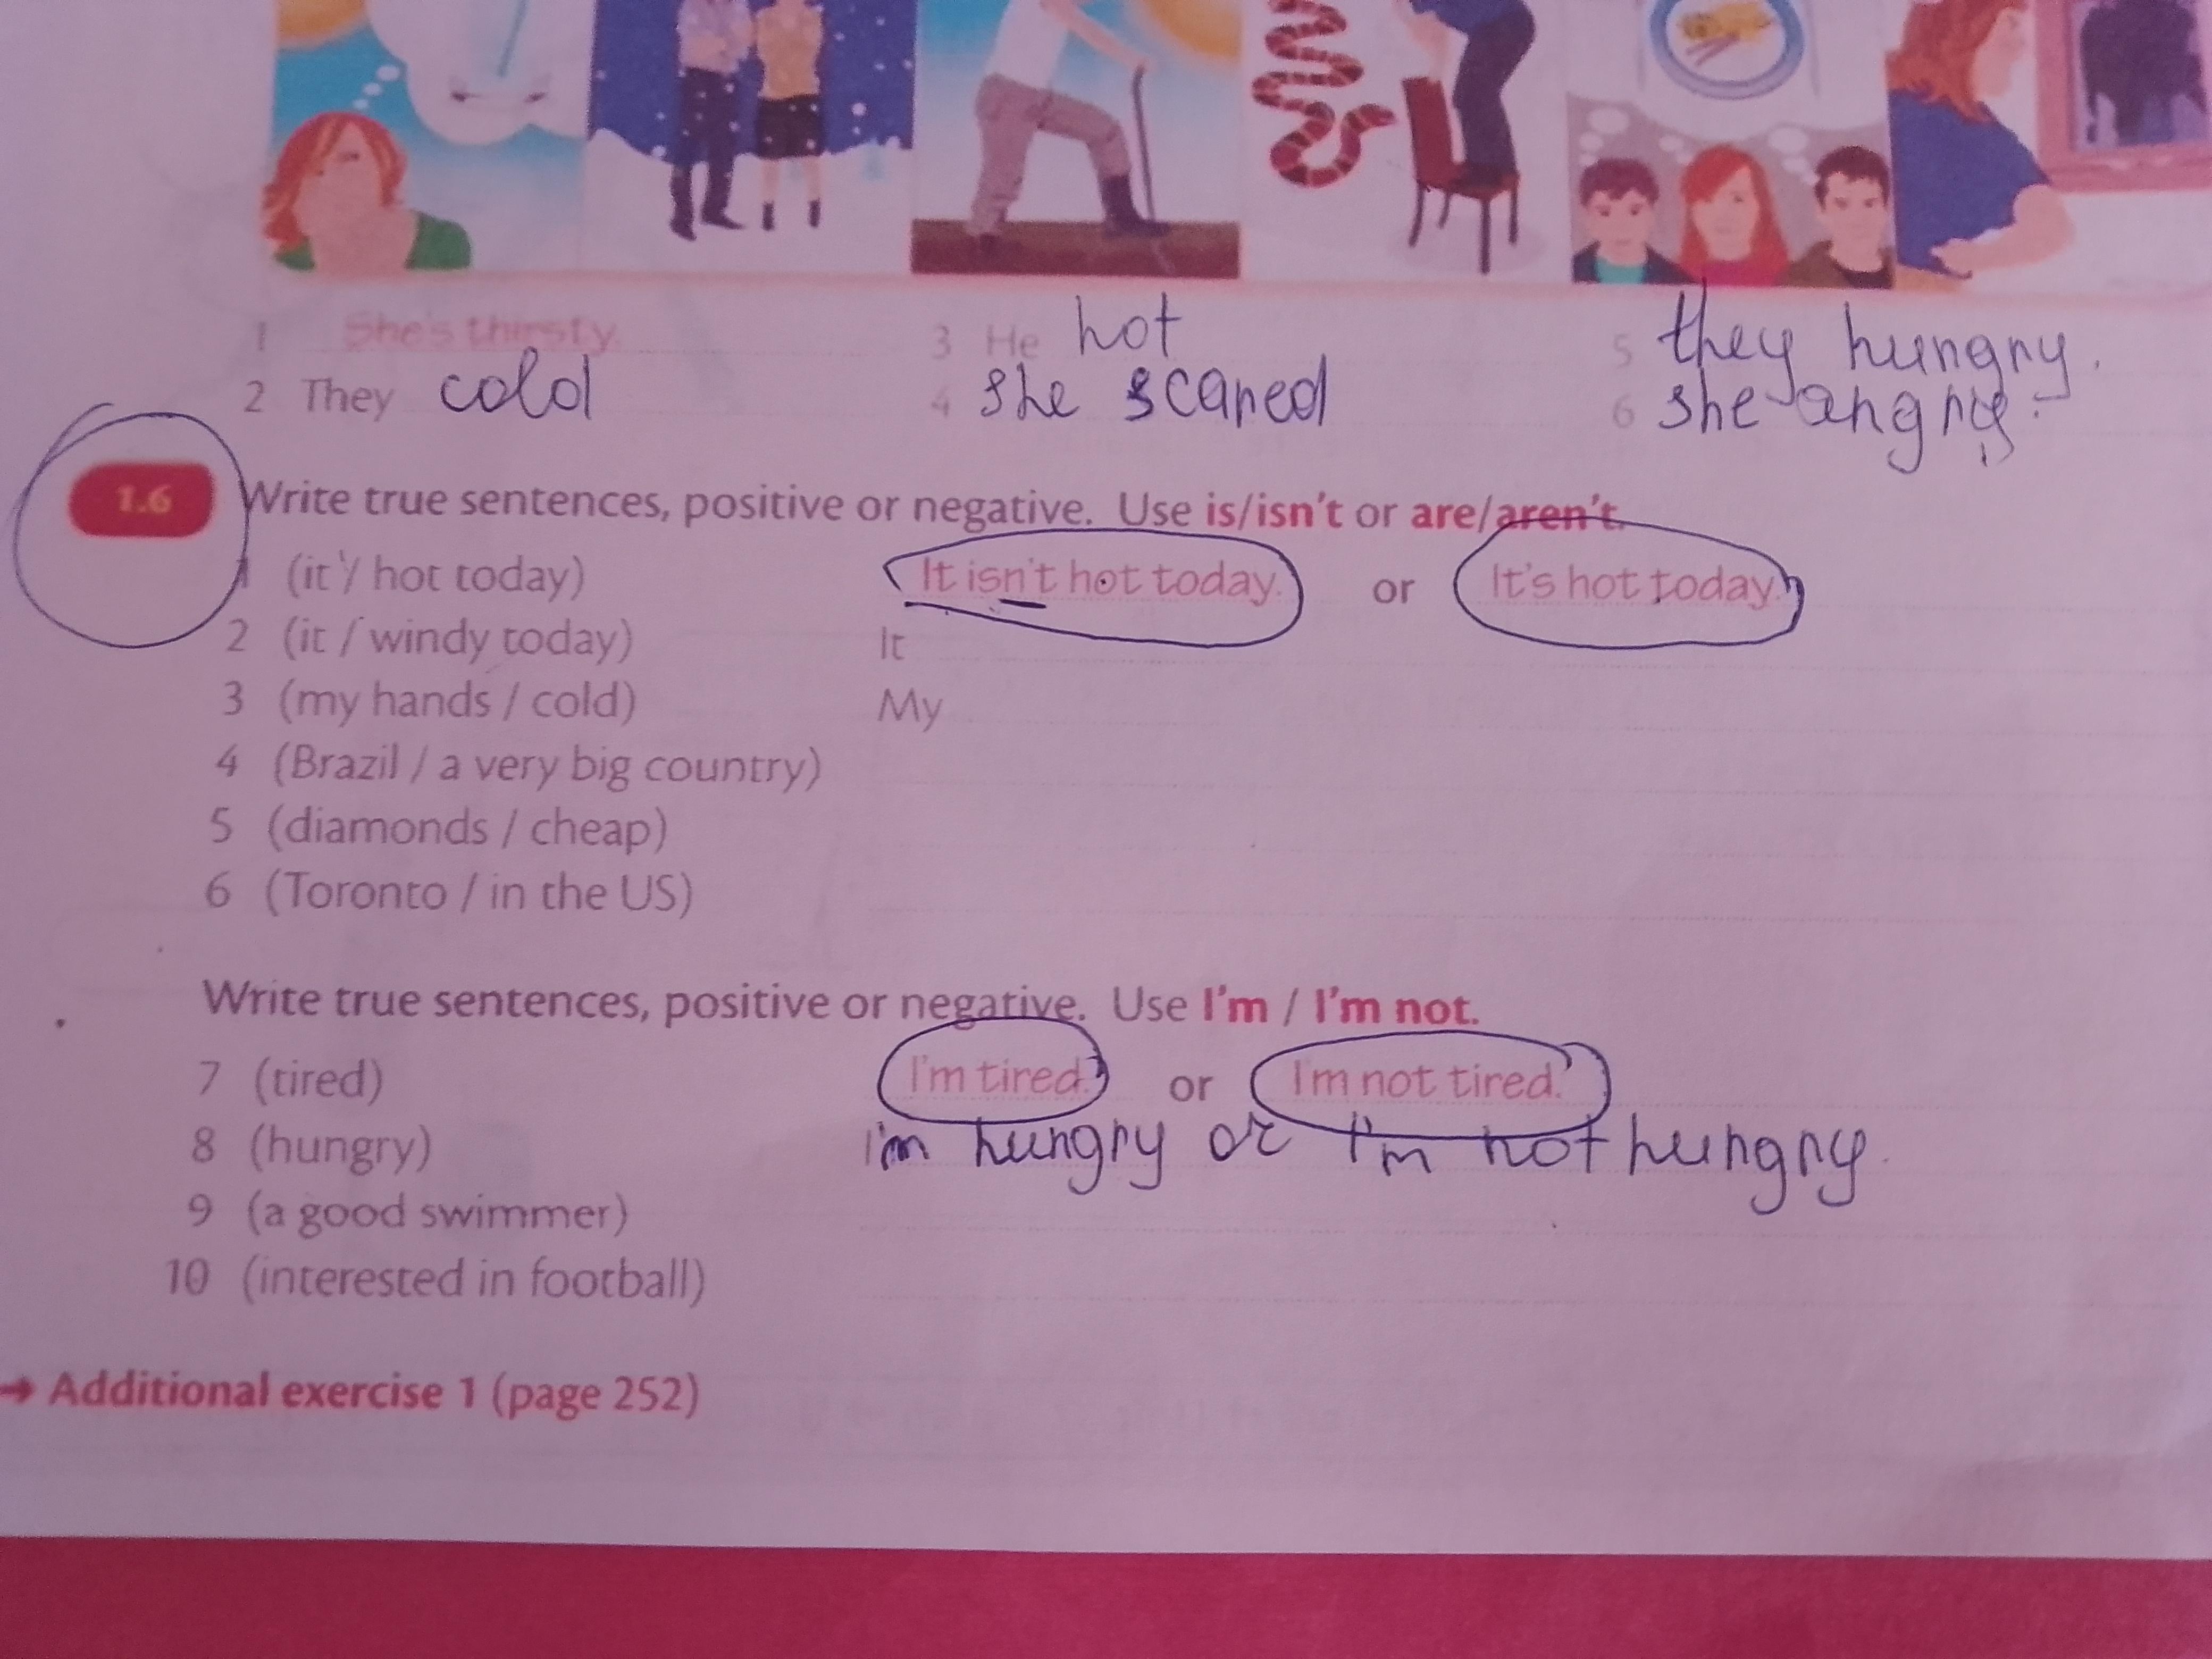 1 She's thirsty. 3 He hot 5 they hungry.
2 They cold 4 she scared 6 she angry.
1.6 Write true sentences, positive or negative. Use is/isn't or are/aren't.
1 (it / hot today) It isn't hot today. or It's hot today.
2 (it / windy today) It
3 (my hands / cold) My
4 (Brazil / a very big country)
5 (diamonds / cheap)
6 (Toronto / in the US)
Write true sentences, positive or negative. Use I'm / I'm not.
7 (tired) I'm tired. or I'm not tired.
8 (hungry) I'm hungry or I'm not hungry.
9 (a good swimmer)
10 (interested in football)
→ Additional exercise 1 (page 252)